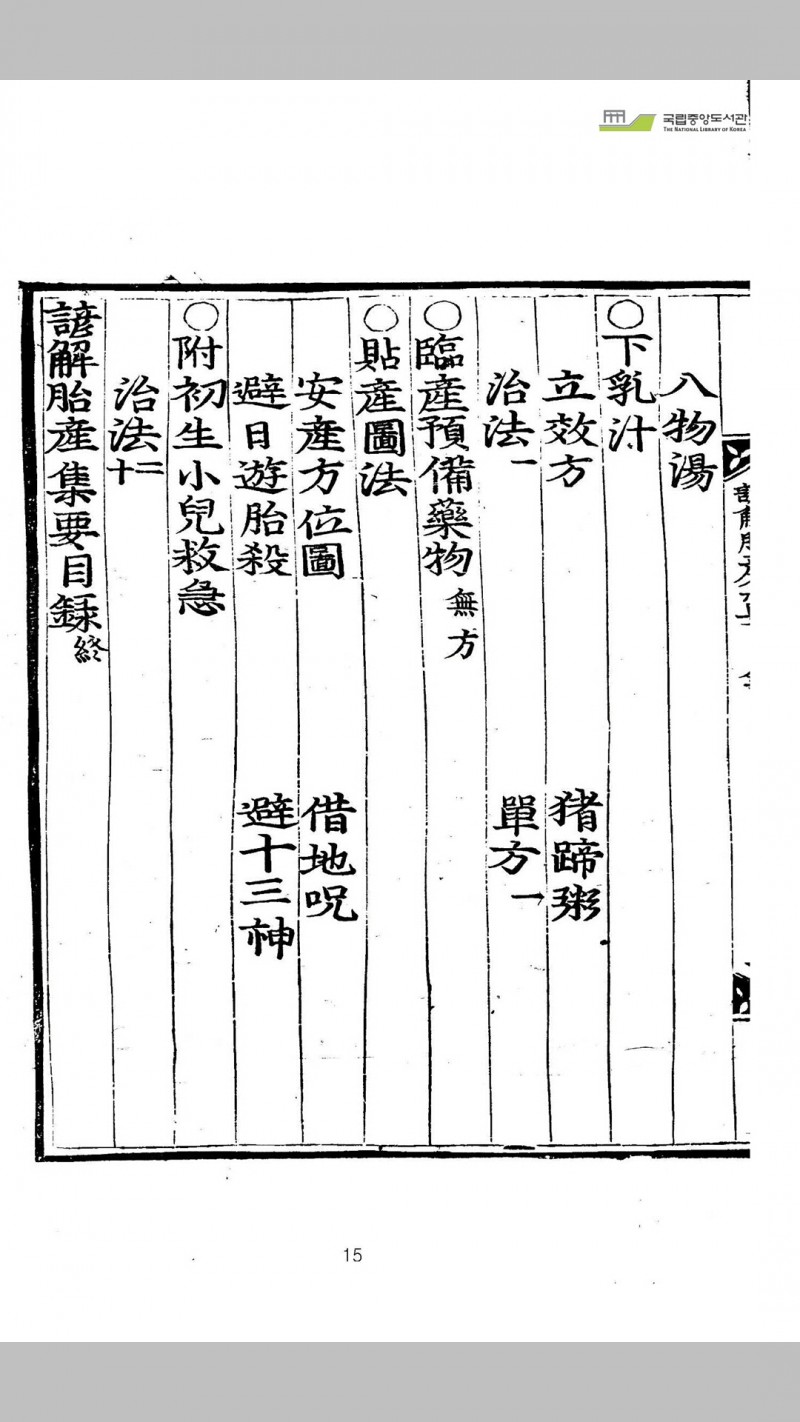 국립중앙도서관
THE NATIONAL LIBRARY OF KOREA
八物湯
〇下乳汁
立效方 猪蹄粥
治法一 單方一
〇臨産預備藥物 無方
〇貼産圖法
安産方位圖 借地呪
避日遊胎殺 避十三神
〇附初生小兒救急
治法十二
諺解胎産集要目録 終
15